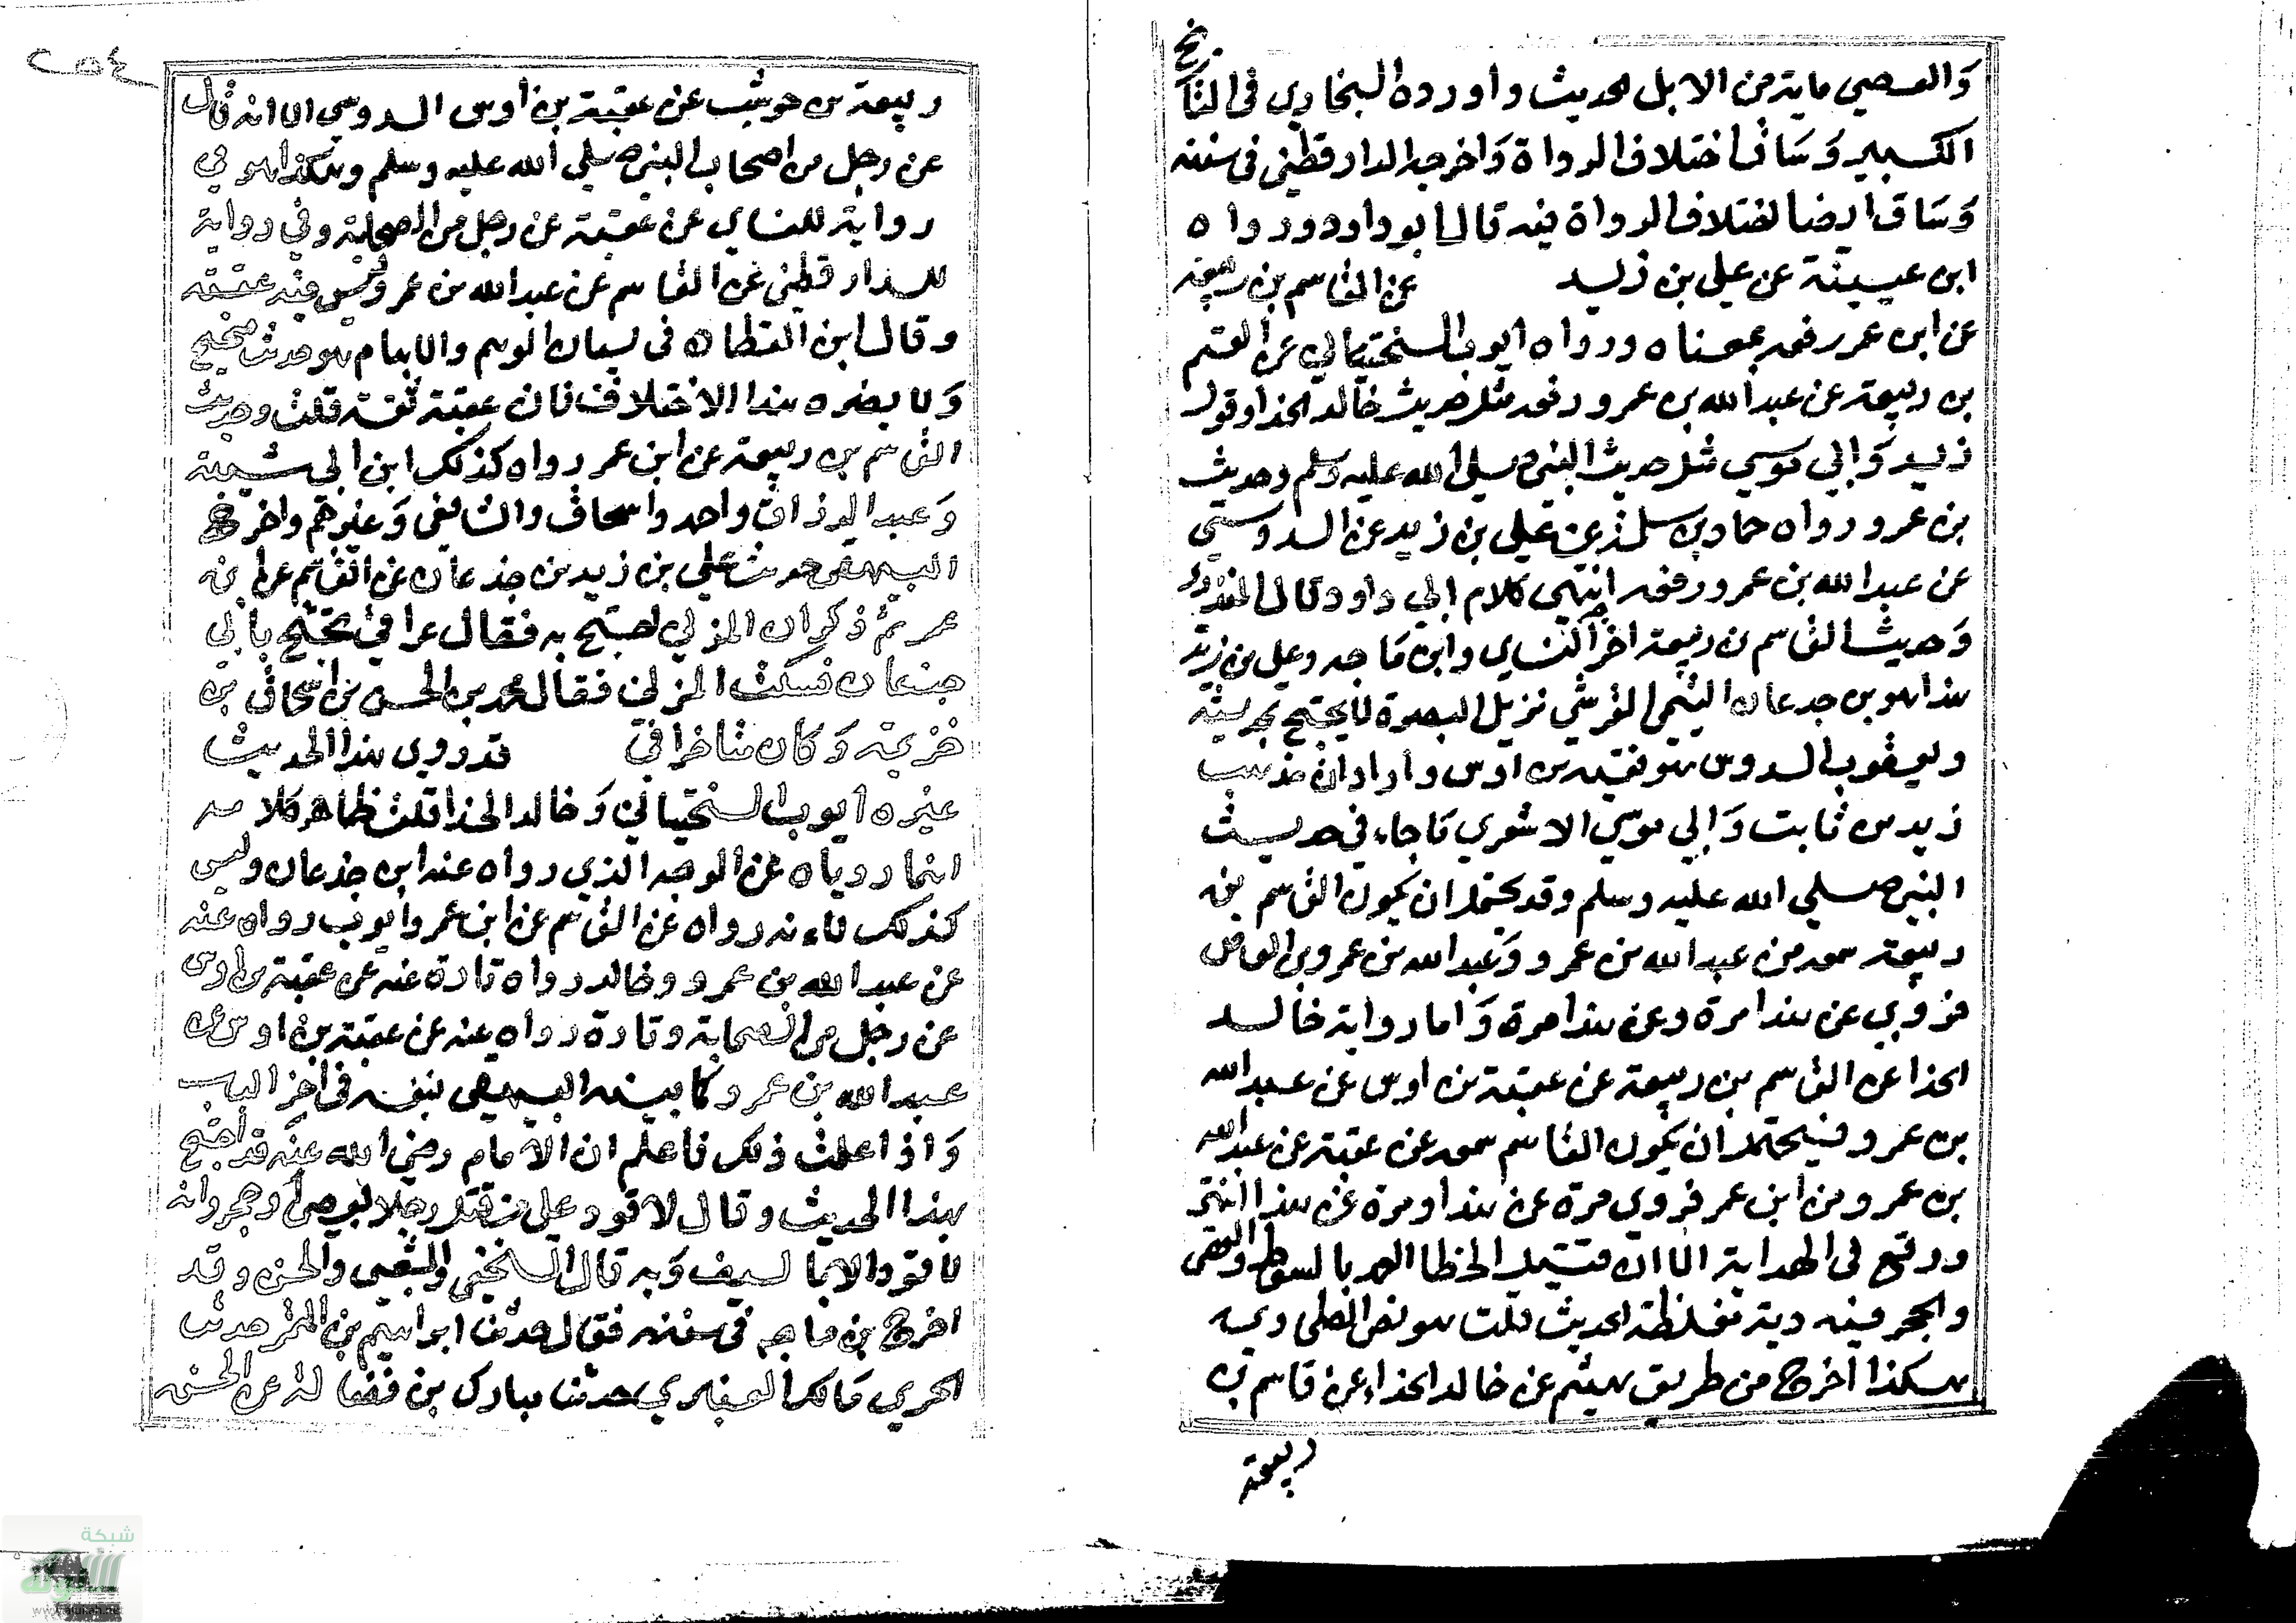 والعصي ماية من الابل الحديث واورده البخاري في التا
ريخ
الكبير وساق اختلاف الرواة واخرجه الدارقطني في سننه
وساق ايضا اختلاف الرواة فيه قال ابو داود ورواه
ابن عيينة عن علي بن زيد عن القاسم بن ربيعة
عن ابن عمر رفعه بمعناه ورواه ايوب السختياني عن القسم
بن ربيعة عن عبد الله بن عمرو رفعه مثل حديث خالد الحذا وقول
زيد وابي موسي مثل حديث النبي صلي الله عليه وسلم وحديث
بن عمرو رواه حماد بن سلمة عن علي بن زيد عن السدوسي
عن عبد الله بن عمرو رفعه انتهي كلام ابي داود وقال المنذري
وحديث القاسم بن ربيعة اخرجه النساي وابن ماجه وعلي بن زيد
هذا هو بن جدعان التيمي القرشي نزيل البصرة لا يحتج بحديثه
ويعقوب السدوس هو عقبه بن اوس واراد ان مذهب
زيد بن ثابت وابي موسي الاشعري كما جاء في حديث
النبي صلي الله عليه وسلم وقد يحتمل ان يكون القاسم بن
ربيعة سمعه من عبد الله بن عمر وعبد الله بن عمرو بن العاص
فروي عن هذا مرة وعن هذا مرة واما رواية خالد
الحذا عن القاسم بن ربيعة عن عقبة بن اوس عن عبد الله
بن عمرو فيحتمل ان يكون القاسم سمعه عن عقبة عن عبد الله
بن عمرو ومن ابن عمر فروي مرة عن هذا ومرة عن هذا انتهي
ووقع في الهداية الا ان قتيل الخطا العمد بالسوط والعصي
والحجر وفيه دية مغلظة الحديث قلت
هكذا اخرج من طريق هشيم عن خالد الحذاء عن قاسم بن
ربيعة
٢٥٤
ربيعة بن جوشب عن عقبة بن اوس السدوسي الا انه قال
عن رجل من اصحاب النبي صلي الله عليه وسلم وهكذا هو في
رواية للنساي عن عقبة عن رجل من الصحابة وفي رواية
للدارقطني عن القاسم عن عبد الله بن عمر وليس فيه عقبة
وقال ابن القطان في بيان الوهم والايهام هو حديث صحيح
ولا يضره هذا الاختلاف فان عقبة ثقة قلت وحديث
القاسم بن ربيعة عن ابن عمر رواه كذلك ابن ابي شيبة
وعبد الرزاق واحمد واسحاق والشافعي وغيرهم واخرج
البيهقي حديث علي بن زيد بن جدعان عن القاسم عن ابن
عمر ثم ذكر ان المزني احتج به فقال عراقي تحتج بابن
جدعان فسكت المزني فقال محمد بن الحسن بن اسحاق بن
خزيمة وكان مناظرا في قد روي هذا الحديث
غيره ايوب السختياني وخالد الحذا قلت ظاهر كلامه
انما روياه عن الوجه الذي رواه عنه ابن جدعان وليس
كذلك لانه رواه عن القاسم عن ابن عمر وايوب رواه عنه
عن عبد الله بن عمرو وخالد رواه تارة عنه عن عقبة بن اوس
عن رجل من الصحابة وتارة رواه عنه عن عقبة بن اوس عن
عبد الله بن عمرو كما بينه البيهقي بنفسه في اخر الباب
واذا علمت ذلك فاعلم ان الامام رضي الله عنه قد احتج
بهذا الحديث وقال لا قود علي من قتل رجلا بعصي او حجر وانه
لا قود الا بالسيف وبه قال النخعي والشعبي والحسن وقد
اخرج بن ماجه في سننه فقال حدثنا ابراهيم بن المستمر حدثنا
الحر بن مالك العنبري حدثنا مبارك بن فضالة عن الحسن
شبكة